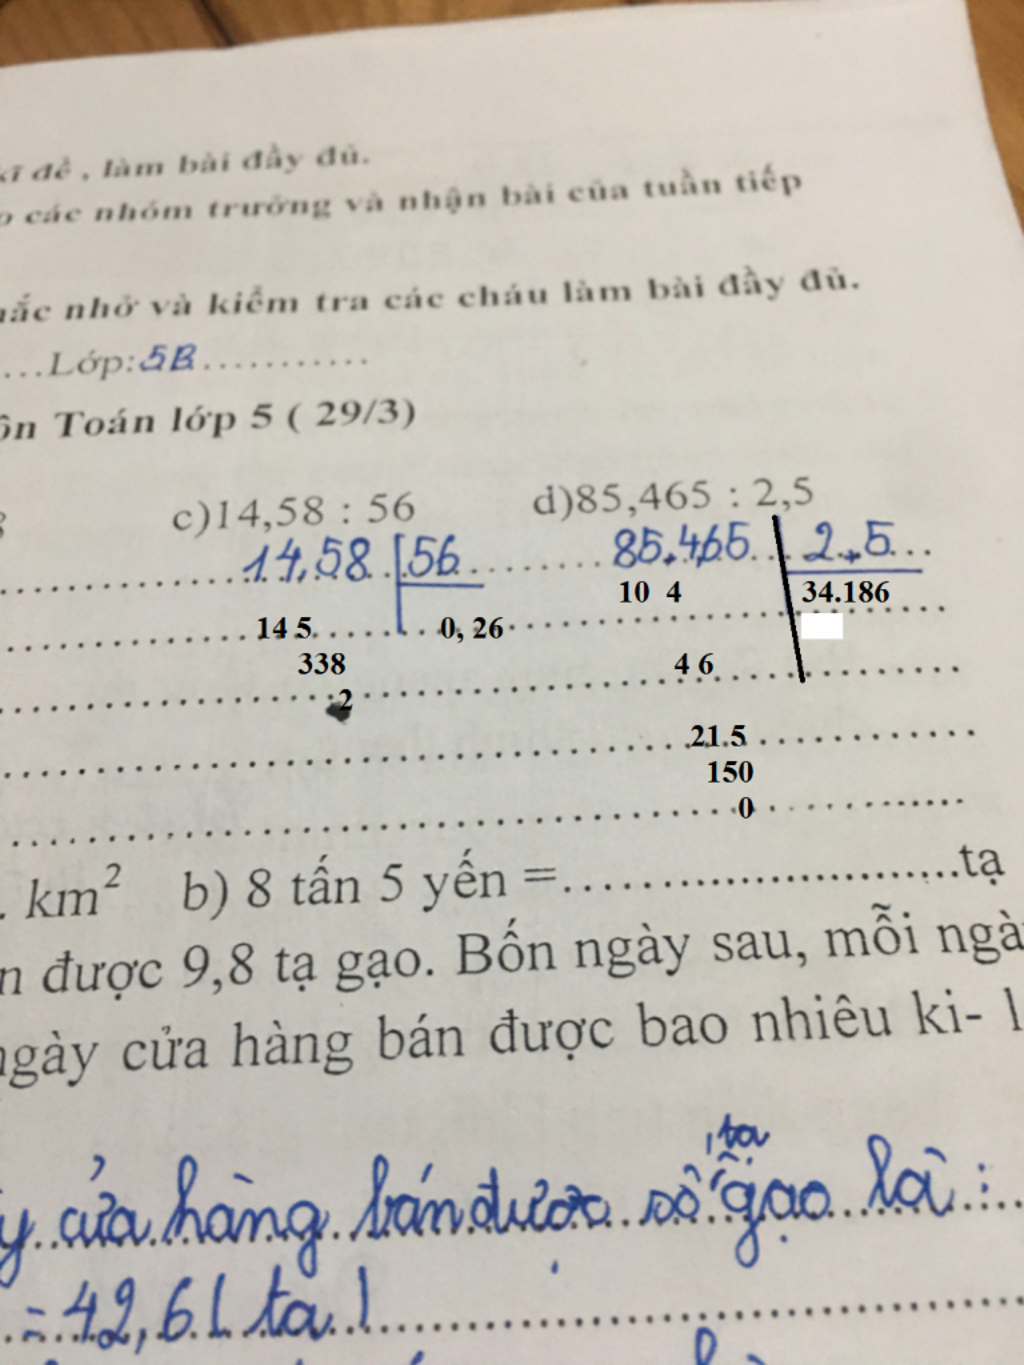 kĩ đề , làm bài đầy đủ.
o các nhóm trưởng và nhận bài của tuần tiếp
nhắc nhở và kiểm tra các cháu làm bài đầy đủ.
....Lớp:5B............
ôn Toán lớp 5 ( 29/3)
c)14,58 : 56 d)85,465 : 2,5
14,58 56 85,465 2,5
10 4 34.186
14 5 0, 26
338 4 6
2
21.5
150
0
. km² b) 8 tấn 5 yến =..........................tạ
n được 9,8 tạ gạo. Bốn ngày sau, mỗi ngà
ngày cửa hàng bán được bao nhiêu ki- l
tạ
y cửa hàng bán được số gạo là :
= 42,6 ( tạ )